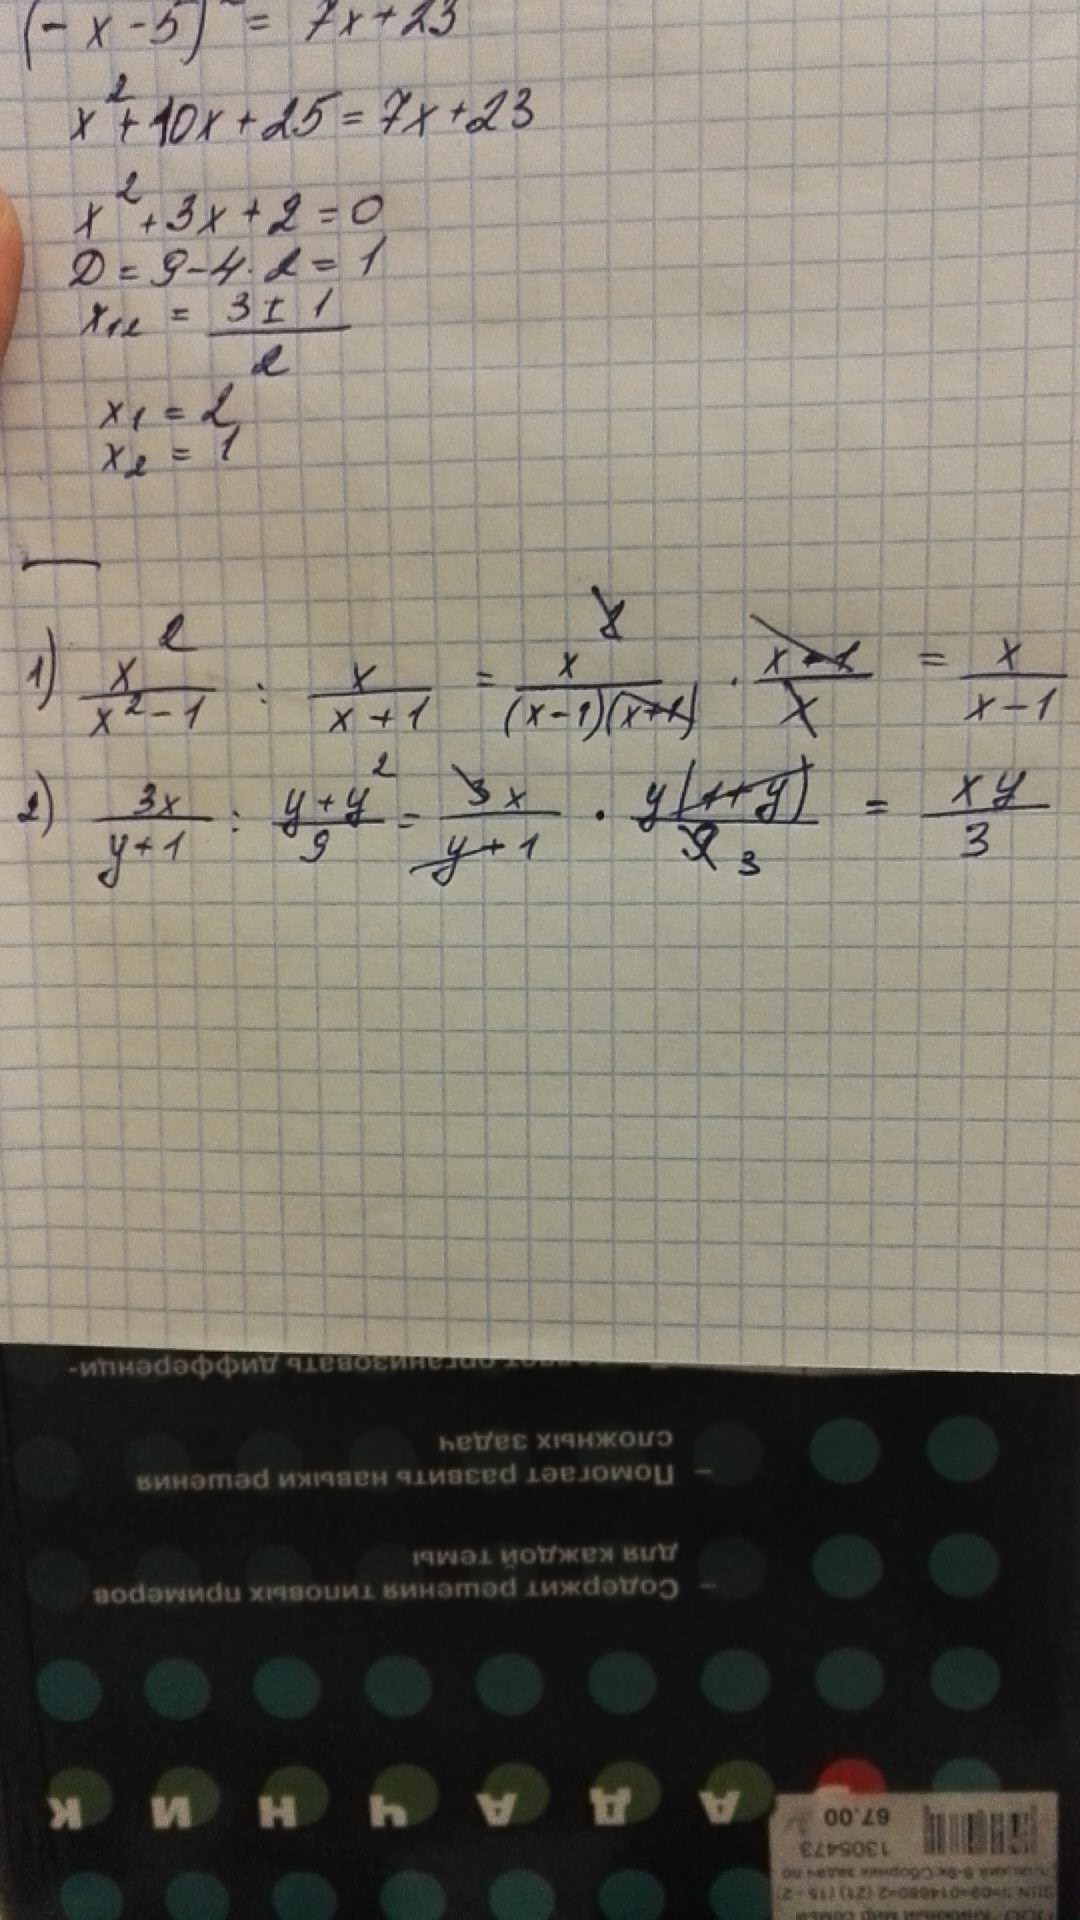 (-x-5)² = 7x+23
x²+10x+25=7x+23
x²+3x+2=0
D=9-4·2=1
x₁₂ = (3±1)/2
x₁ = 2
x₂ = 1
1) x²/(x²-1) : x/(x+1) = x²/((x-1)(x+1)) · (x+1)/x = x/(x-1)
2) 3x/(y+1) : (y+y²)/9 = 3x/(y+1) · y(1+y)/9 3 = xy/3
организовать дифференци-
– Помогает развить навыки решения
сложных задач
– Содержит решения типовых примеров
для каждой темы
З А Д А Ч Н И К
67.00
1305473